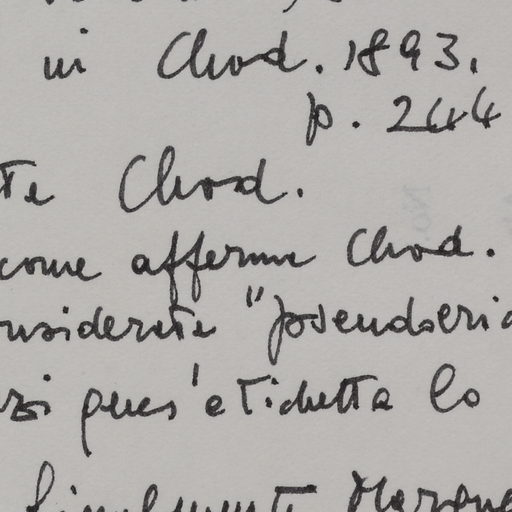 in Chod. 1893,
p. 244
te Chod.
come afferma Chod.
nsiderata "pseudoeri
zi ques'etichetta lo
finalmente